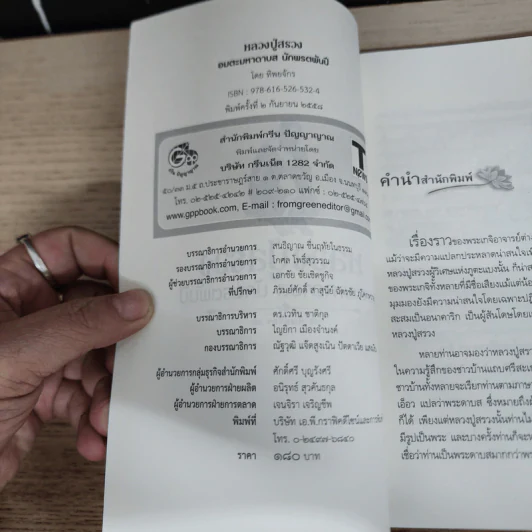 หลวงปู่สรวง
อมตะมหาดาบส นักพรตพันปี
โดย ทิพยจักร
ISBN : 978-616-526-532-4
พิมพ์ครั้งที่ ๒ กันยายน ๒๕๕๘
สำนักพิมพ์กรีน ปัญญาญาณ
พิมพ์และจัดจำหน่ายโดย
บริษัท กรีนเนิต 1282 จำกัด
ถ.ประชาราษฎร์สาย ๑ ต.ตลาดขวัญ อ.เมือง
โทร. ๐๒-๕๒๕-๔๒๔๒ # ๒๐๙-๒๑๐ แฟกซ์ :
www.gppbook.com, E-mail : fromgreeneditor@gmail
บรรณาธิการอำนวยการ สนธิญาณ ชื่นฤทัยในธรรม
รองบรรณาธิการอำนวยการ โกศล โพธิ์สุวรรณ
ผู้ช่วยบรรณาธิการอำนวยการ เอกชัย ชัยเชิดชูกิจ
ที่ปรึกษา ภิรมย์ศักดิ์ สาสุนีย์ ฉัตรชัย
บรรณาธิการบริหาร ดร.เวทิน ชาติกุล
บรรณาธิการ ใญยิกา เมืองจำนงค์
กองบรรณาธิการ ณัฐวุฒิ แจ็ดสูงเนิน
ผู้อำนวยการกลุ่มธุรกิจสำนักพิมพ์ ศักดิ์ศรี บุญรังศรี
ผู้อำนวยการฝ่ายผลิต อนิรุทธ์ สุวคันธกุล
ผู้อำนวยการฝ่ายการตลาด เจนจิรา เจริญชีพ
พิมพ์ที่ บริษัท เอ.พี.กราฟิคดีไซน์และการพิมพ์
โทร. ๐-๒๔๙๗-๖๘๔๐
ราคา ๑๘๐ บาท
คำนำสำนักพิมพ์
เรื่องราวของพระเกจิอาจารย์ต่าง
แม้ว่าจะมีความแปลกประหลาดน่าสนใจเพี
หลวงปู่สรวงผู้วิเศษแห่งภูตะแบงนั้น ก็น่าส
ของพระเกจิทั้งหลายที่มีชื่อเสียงแม้แต่น้อ
มุมมองยังมีความน่าสนใจโดยเฉพาะปฏิ
สะสมเป็นอนาคาริก เป็นผู้สันโดษโดยแ
หลวงปู่สรวง
หลายท่านอาจมองว่าหลวงปู่สรว
ในความรู้สึกของชาวบ้านแถบศรีสะเ
ชาวบ้านทั้งหลายจะเรียกท่านตามภาษา
เอ็อว แปลว่าพระดาบส ซึ่งหมายถึงผู้
ก็ได้ เพียงแต่หลวงปู่สรวงนั้นท่านไม่
มีรูปเป็นพระ และบางครั้งท่านก็จะน
เชื่อว่าท่านเป็นพระดาบสมากกว่าพร